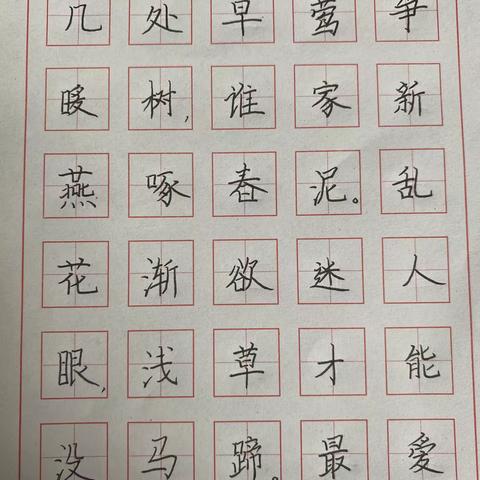 几处早莺争
暖树,谁家新
燕啄春泥。乱
花渐欲迷人
眼,浅草才能
没马蹄。最爱